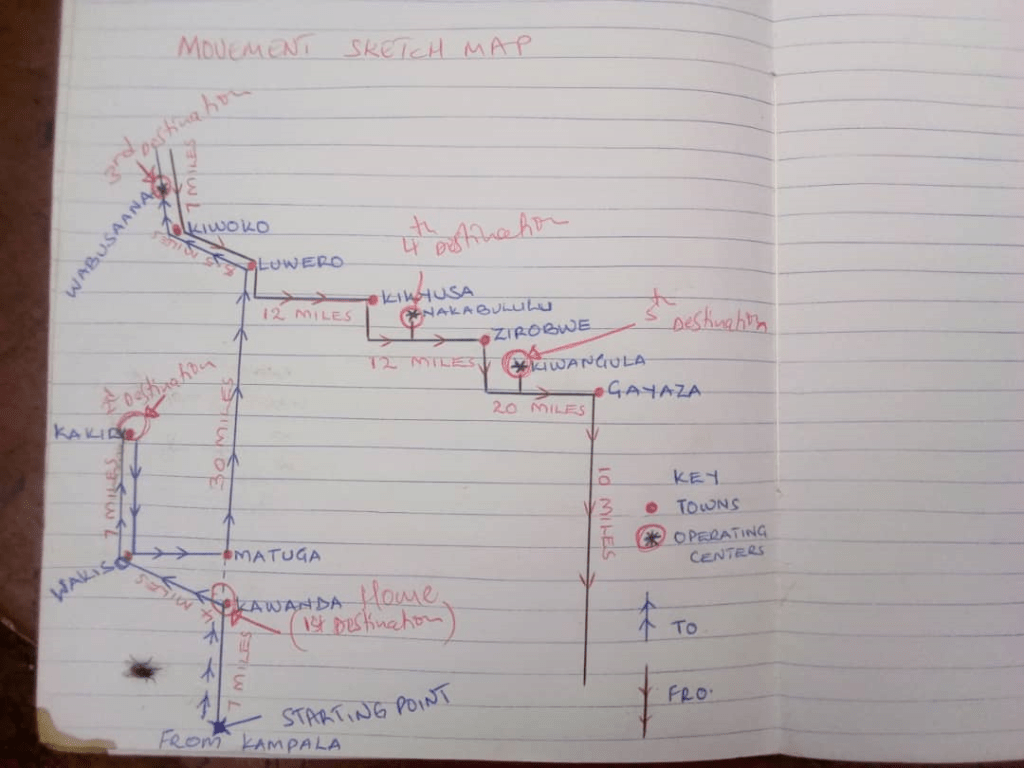 MOVEMENT SKETCH MAP
3rd Destination
7 MILES
WABUSAANA
KIWOKO
MILES
LUWERO
4th Destination
12 MILES
NAKABULULU
5th Destination
ZIROBWE
12 MILES
KIWANGULA
20 MILES
GAYAZA
Destination
30 MILES
7 MILES
10 MILES
KEY
TOWNS
OPERATING
CENTERS
MATUGA
WAKIS
MILES
KAWANDA Home
(1st Destination)
TO
7 MILES
FRO.
STARTING POINT
FROM KAMPALA